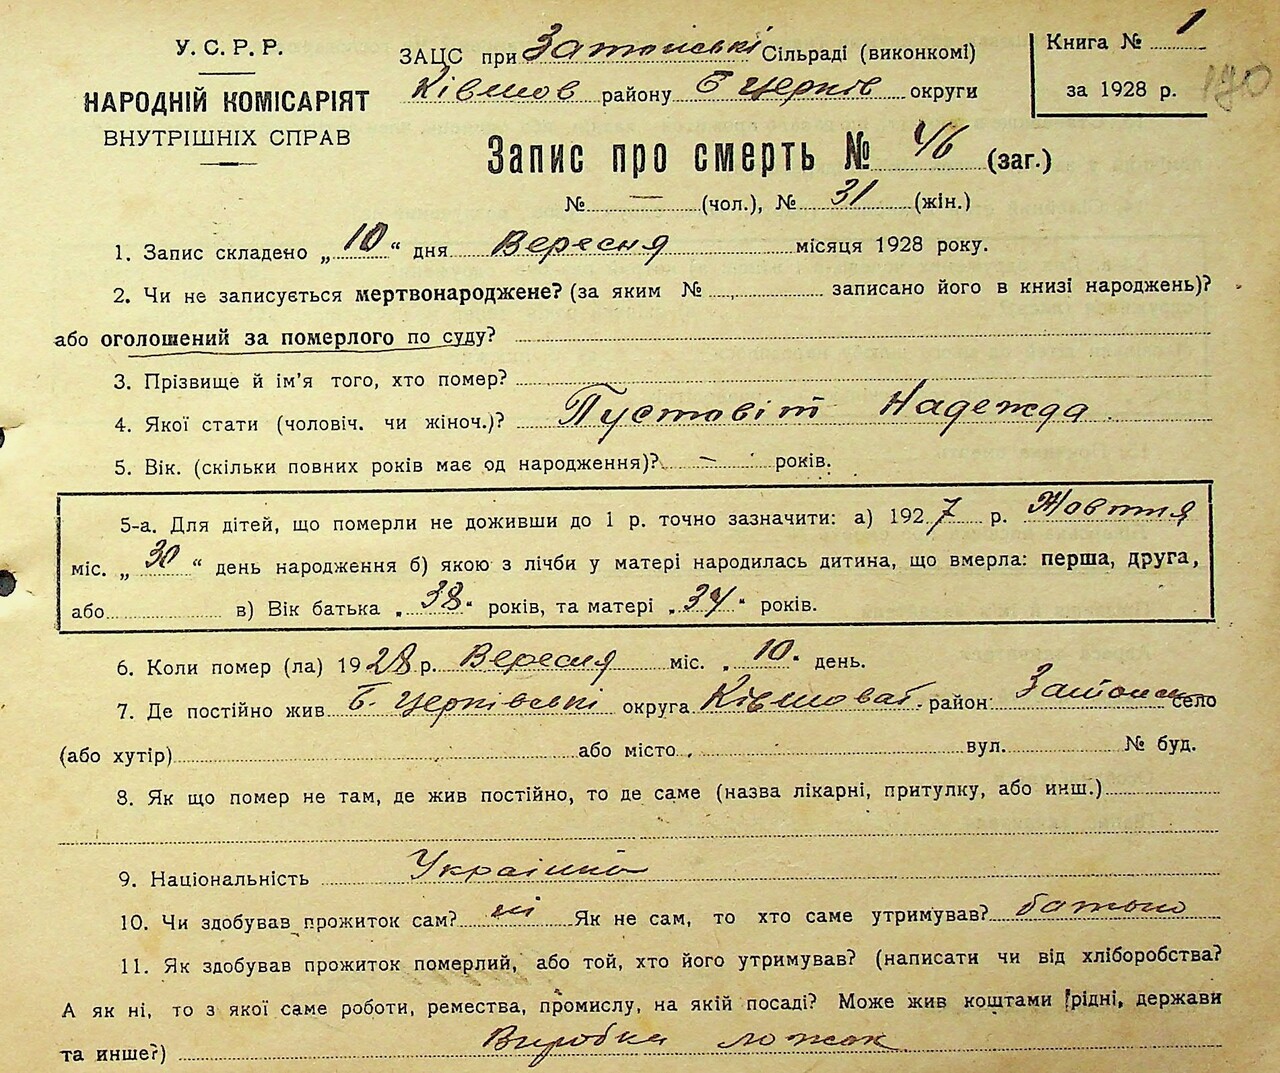 У. С. Р. Р.
НАРОДНІЙ КОМІСАРІЯТ
ВНУТРІШНІХ СПРАВ
ЗАЦС при Затонські Сільраді (виконкомі)
Ківшов району Б Церків округи
Книга № 1
за 1928 р. 190
Запис про смерть № 46 (заг.)
№ — (чол.), № 31 (жін.)
1. Запис складено „10“ дня Вересня місяця 1928 року.
2. Чи не записується мертвонароджене? (за яким № записано його в книзі народжень)?
або оголошений за померлого по суду?
3. Прізвище й ім'я того, хто помер?
4. Якої стати (чоловіч. чи жіноч.)? Пустовіт Надежда
5. Вік. (скільки повних років має од народження)? — років.
5-а. Для дітей, що померли не доживши до 1 р. точно зазначити: а) 1927 р. Жовтня
міс. „30“ день народження б) якою з лічби у матері народилась дитина, що вмерла: перша, друга,
або в) Вік батька „38“ років, та матері „34“ років.
6. Коли помер (ла) 1928 р. Вересня міс. „10“ день.
7. Де постійно жив Б. Церківські округа Ківшоват. район Затонск село
(або хутір) або місто вул. № буд.
8. Як що помер не там, де жив постійно, то де саме (назва лікарні, притулку, або инш.)
9. Національність Украінка
10. Чи здобував прожиток сам? ні Як не сам, то хто саме утримував? батько
11. Як здобував прожиток померлий, або той, хто його утримував? (написати чи від хліборобства?
А як ні, то з якої саме роботи, ремества, промислу, на якій посаді? Може жив коштами рідні, держави
та инше?) Виробка ложок